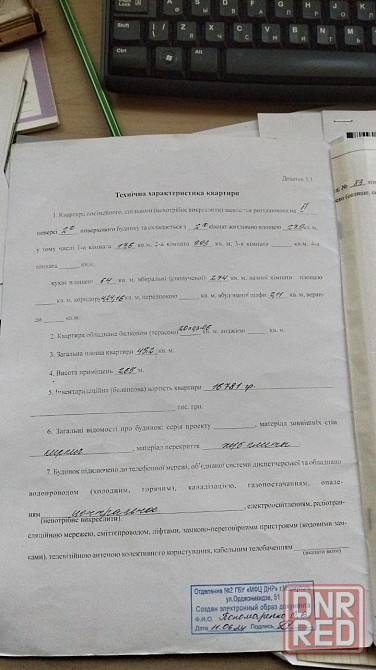 Додаток 1.1
Технічна характеристика квартири
1. Квартира посімейного, спільного (непотрібне викреслити) заселення розташована на II
поверсі 2х поверхового будинку та складається з 2х кімнат житловою площею кв.м,
у тому числі 1-а кімната 17,6 кв.м, 2-а кімната кв.м, 3-я кімната кв.м, 4-а
кімната кв.м.
кухні площею 6,4 кв.м, вбиральні (сполученої) 2,74 кв.м, ванної кімнати площею
кв.м, коридору кв.м, передпокою кв.м, вбудованої шафи кв.м, веран-
ди кв.м.
2. Квартира обладнана балконом (терасою) кв.м, лоджією кв.м.
3. Загальна площа квартири 45,2 кв.м.
4. Висота приміщень м.
5. Інвентаризаційна (балансова) вартість квартири 16781 гр.
тис. грн.
6. Загальні відомості про будинок: серія проекту , матеріал зовнішніх стін
кирпич , матеріал перекриття
7. Будинок підключено до телефонної мережі, об'єднаної системи диспетчерської та обладнано
водопроводом (холодним, гарячим), каналізацією, газопостачанням, опале-
нням центральное , електроосвітленням, радіотран-
(непотрібне викреслити)
сляційною мережею, сміттєпроводом, ліфтами, замково-переговорними пристроями (кодовими зам-
ками), телевізійною антеною колективного користування, кабельним телебаченням
(вказати яким)
Отделение №2 ГБУ «МФЦ ДНР» г.
ул.Орджоникидзе, 51
Создан электронный образ документа
Ф.И.О. Пономаренко
Дата 11.06.24 Подпись
DNR
RED